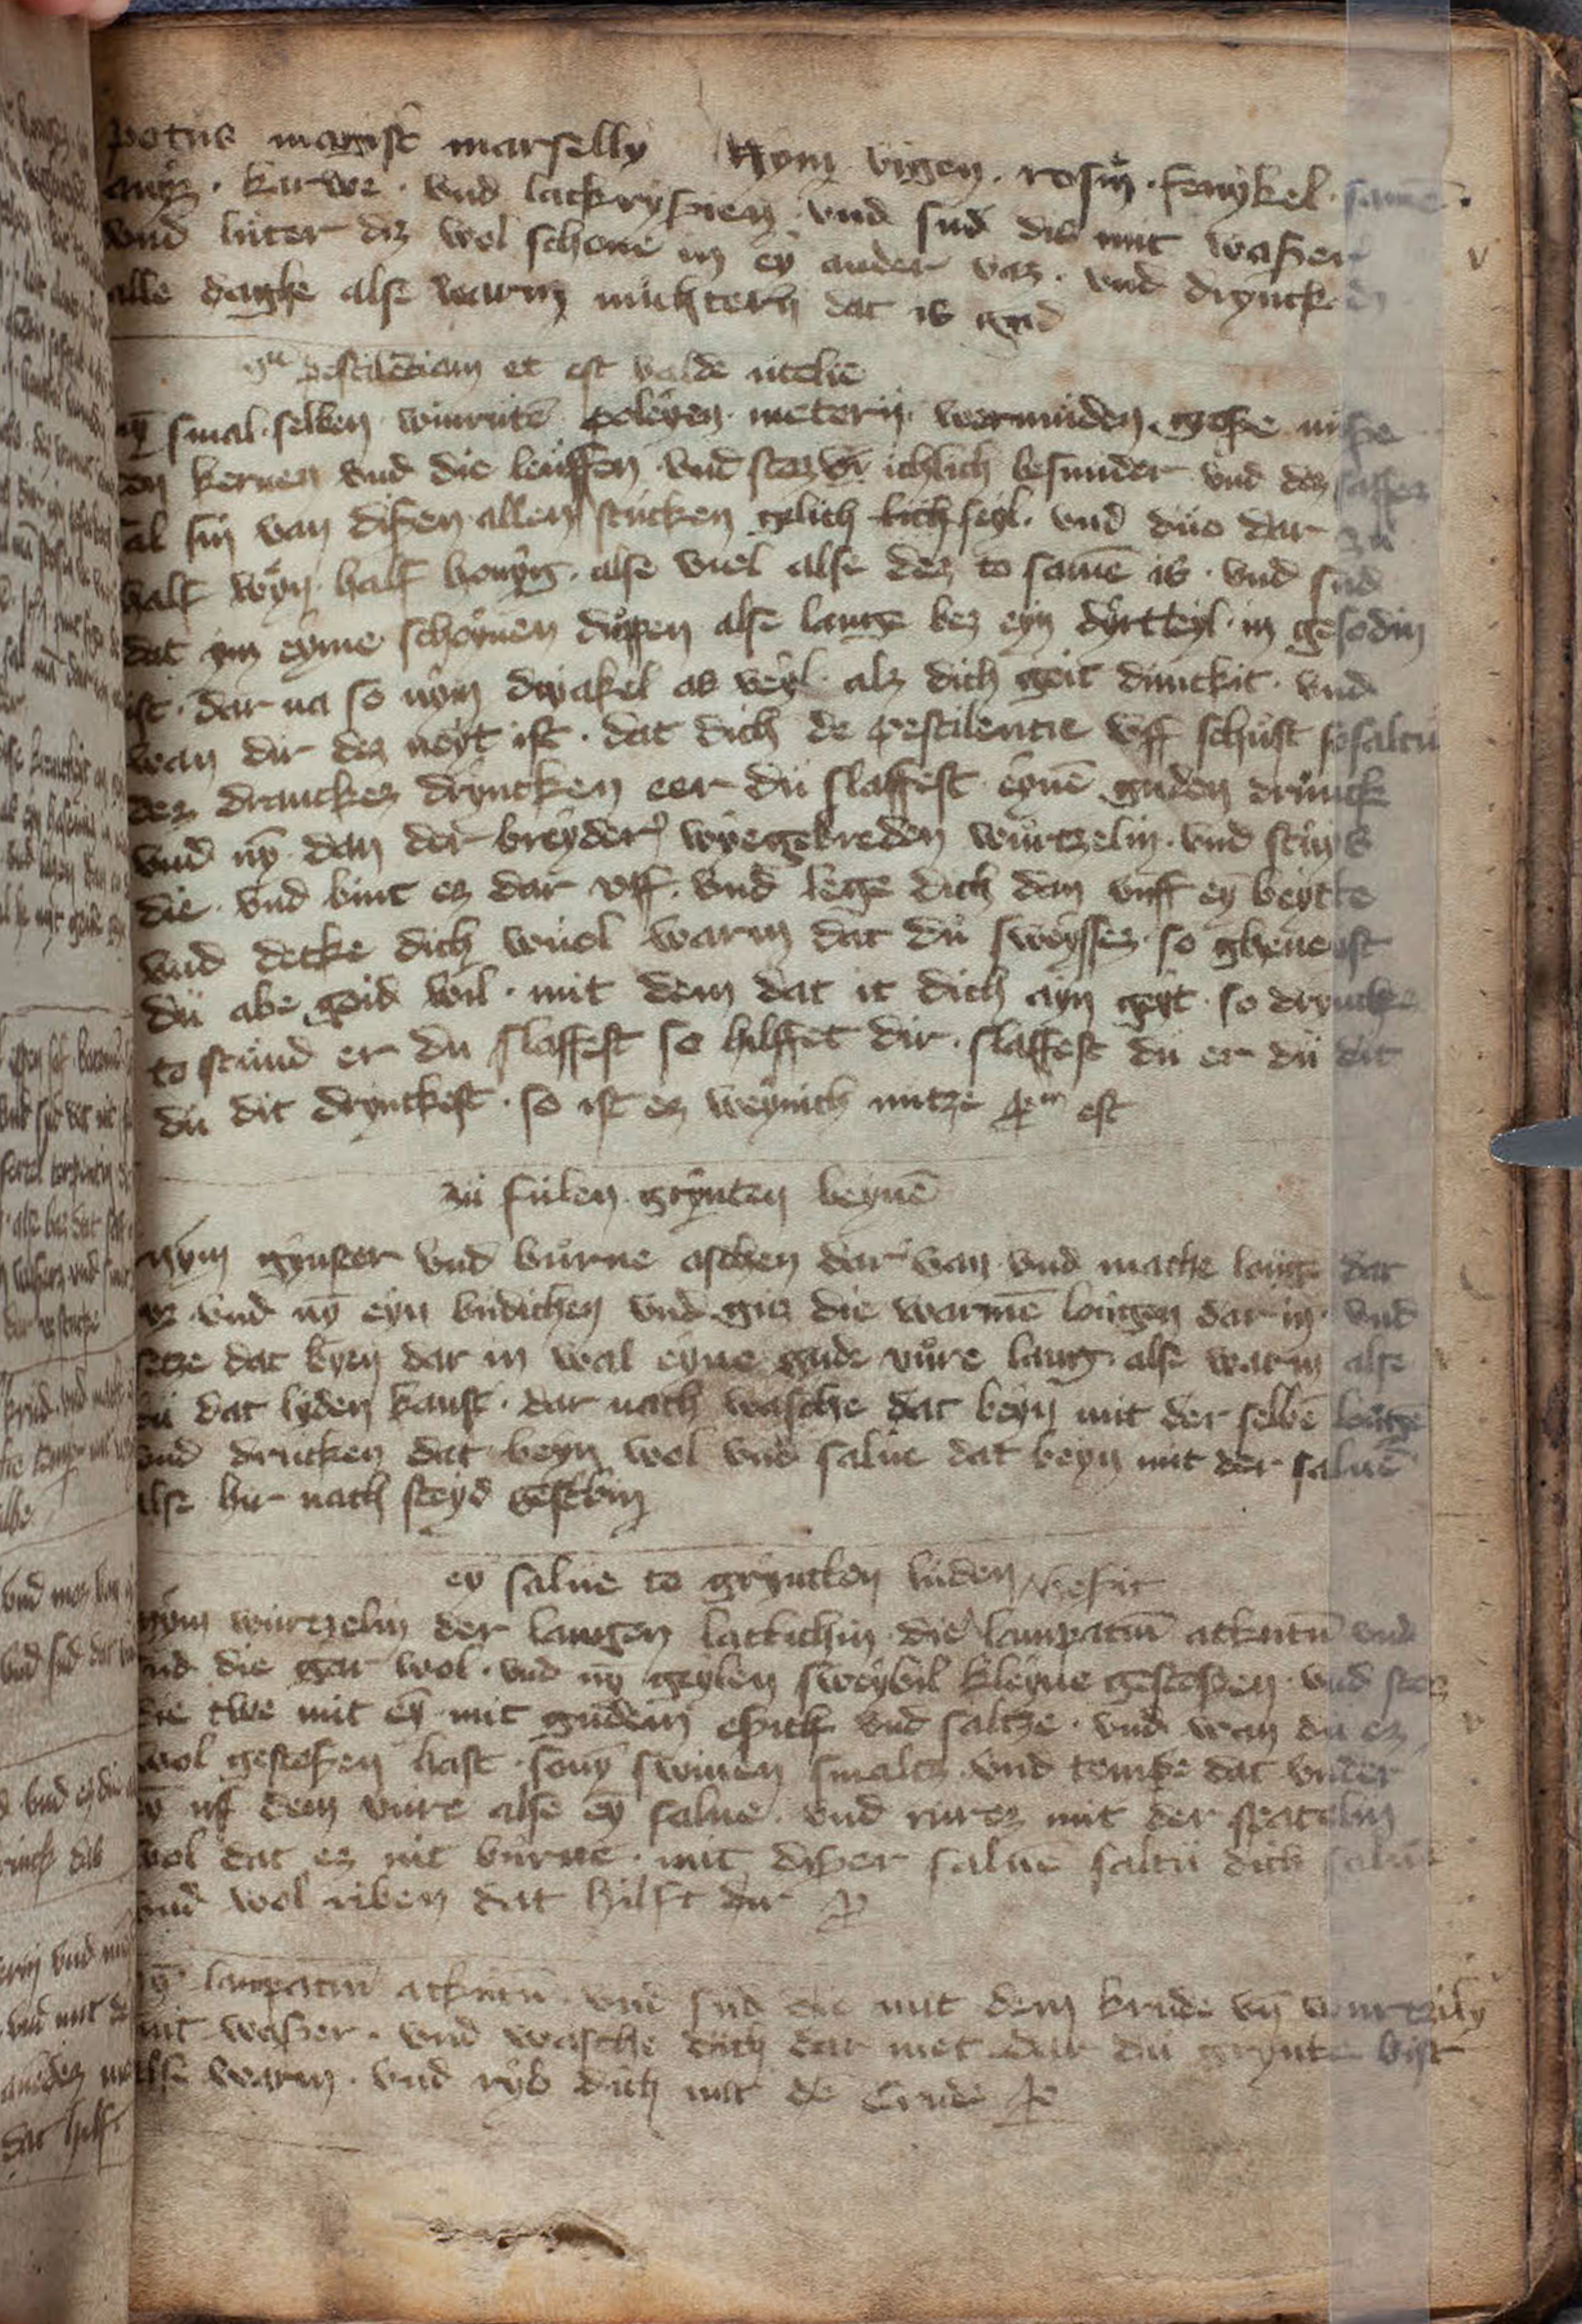 potus magist marselly Nym vigen · rosin · fenykel · samē ·
anys · kurwe · vnd lackryssien vnd sud dis mit wasser
vnd luter diz wol schone in ey ander vas · vnd dryncke
alle daghe alse warm nuchtern dat is gud
pestilēciam et est valde utele
smal · selben · winrutē · poleyen · metern · wermuden · grosse nusse
kernen vnd die leuffen vnd stez ichlich besunder vnd dez saffes
al sin van disen allen stucken gelich feyl · vnd duo dar zu
half wyn · half honyg · alse viel alse dez to samē is · vnd sud
dat ym eyme schoynen duppen alse lange bez eyn dyrtteyl in gesodin
ist · dar na so nym dryakel as veyl alz dich goit dunckit · vnd
wan dir dez noyt ist · dat dich de pestilentie vff schust so saltu
dez dranckez dryncken eer du slaffest eynē guden drunck
vnd nȳ dan der breyder wyegebreden wurtzelin · vnd stuys
die · vnd bint ez dar vff · vnd lege dich dan vuff eȳ beytte
vnd decke dich wuol warm dat du sweyssez · so ghenest
du abe goid wil · mit dem dat it dich ayn geyt · so dryncke
to stund er du slaffest so hilffet dir · slaffest du er du dit
du dit drynckest · so ist ez weynich nutze est
zu fulen grynten beynē
nym gynster vnd burne aschen dar van vnd mache louge dar
vz vnd nȳ eyn budichen vnd gis die warmē lougen dar in · vnd
setze dat byen dar in wal eyne gude vure lang alse warm alse
du dat lyden kanst · dar nach wasche dat beyn mit der selbē lougē
vnd drucken dat beyn wol vnd salue dat beyn mit der saluē
alse hir nach steyd
ey salue to gryntten luden
nym wurtzelin der langen lattichin die lanpacin ackutū vnd
sud die gar wol · vnd nȳ geylen sweybil kleyne gestossen · vnd stoz
die twe mit eȳ mit gudem essich vnd saltze · vnd wan du ez
wol gestossen hast · so nȳ swinen smaltz vnd dat vnder
eȳ uf dem vure alse eȳ salue · vnd rurez mit der spatelin
wol dat ez nit burne · mit disser saluē saltu dich
vnd wol riben dat hilft dir
lanpacin ackutū vnd sud die mit dem krude vn̄ wurtziln
mit wasser · vnd wasche dich dar met dar du grynte bist
alse warm · vnd ryb dich mit